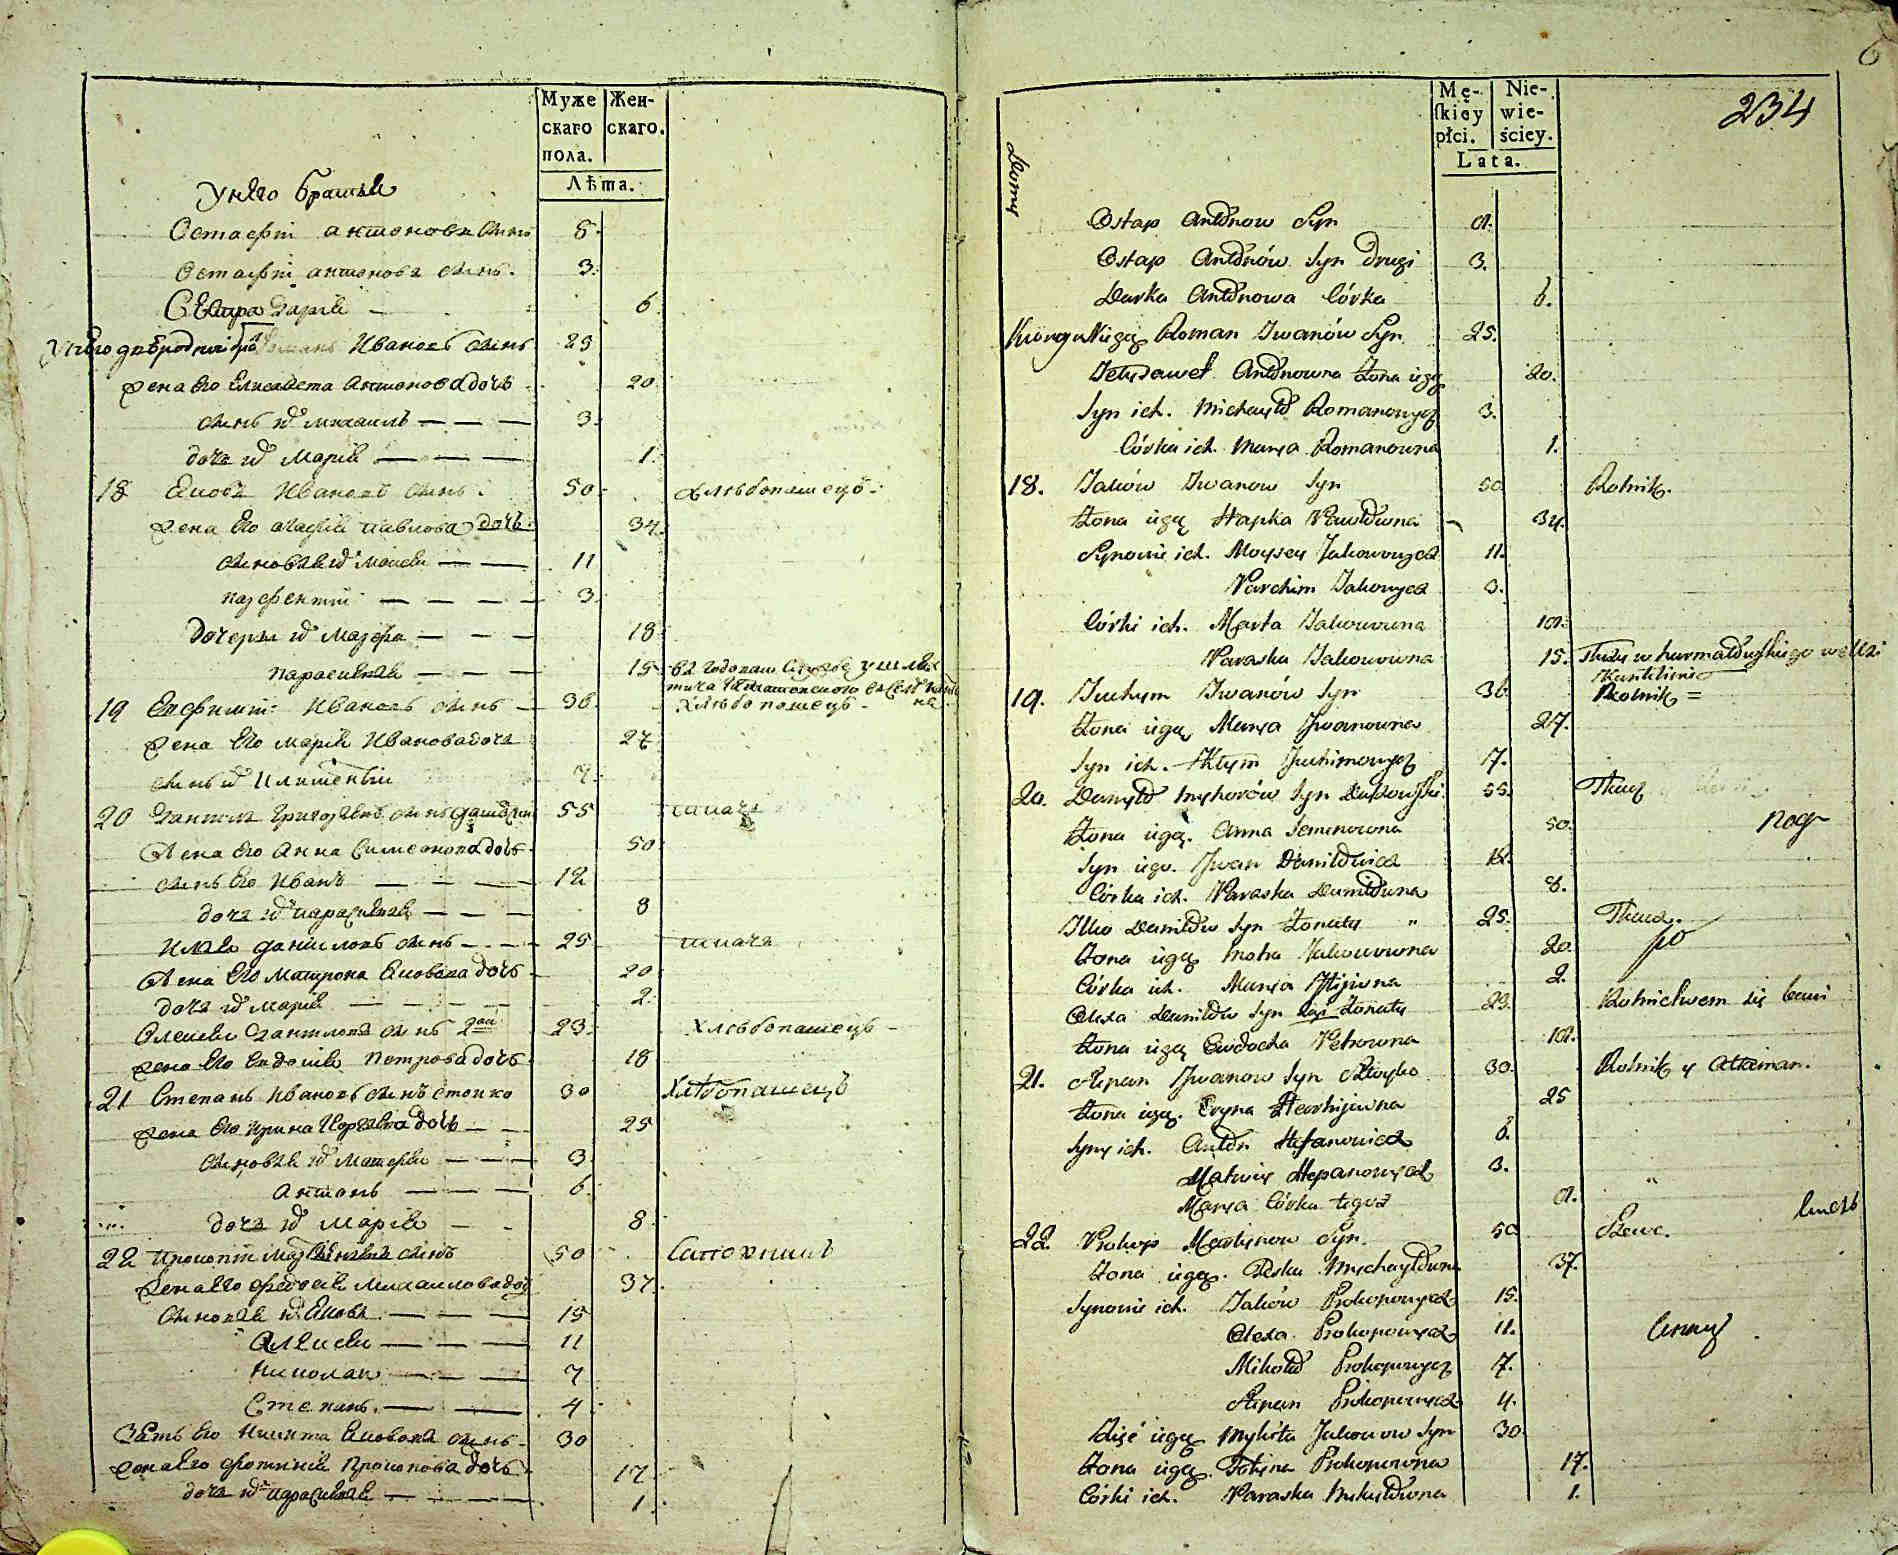 Муже
скаго
пола.
Жен-
скаго.
Лѣта.
У него братья
Остафій антоновъ сынъ 8.
Остафій антоновъ сынъ. 3.
Сестра Дарія — 6
У него двоюродній братъ Романъ Ивановъ сынъ 25
жена его Елисавета Антонова дочь 20
сынъ их Михаилъ — — — 3.
дочь их Марія — — — 1.
18 Яковъ Ивановъ сынъ. 50 хлѣбопашецъ.
жена его Агафія павлова дочь 34
сыновья их Моисей — — 11
парфентій — — — — 3.
Дочеры их Марфа — — — 18
параскевія — — — 15
19 Евфимій Ивановъ сынъ — 36 хлѣбопашецъ
жена его Марія Иванова дочь 27
сынъ их Климентій 7.
20 Данило Григорьевъ сынъ 55 ткачъ
жена его Анна Симеонова дочь 50
сынъ его Иванъ — — — 12
дочь их параскевія — — — 8
Илья даниловъ сынъ — — 25 ткачъ
жена его Матрона Яковлева дочь 20
дочь их Марія — — — — 2.
Алексей Даниловъ сынъ 2ой 23. хлѣбопашецъ
жена его Евдокія Петрова дочь 18
21 Степанъ Ивановъ сынъ стецко 30 Хлѣбопашецъ
жена его Ирина дочь — — 25
сыновья их Матфей — — — 3
Антонъ — — — 6.
дочь их Марія — — 8
22 прокопій сынъ 50 Сапожникъ
жена его Феодосія Михайлова дочь 37.
сыновья их Яковъ — — — 15
Алексей — — — 11
Николай — — — 7
Степанъ. — — 4
Зять его Никита Яковлевъ сынъ 30
жена его Фотинія Прокопова дочь 17
дочь их параскевія — — — 1.
6
234
Domy
Mę-
skiey
płci.
Nie-
wie-
ściey.
Lata.
Ostap Antonow Syn 8.
Ostap Antonów Syn Drugi 3.
Darka Antonowa Córka 6.
Roman Iwanów Syn 25.
Antonowna Żona iego 20.
Syn ich. Michayło Romanowycz 3.
Córka ich. Marya Romanowna 1.
18. Jaków Iwanow Syn 50 Rolnik.
Żona iego Hapka Pawłowna 34.
Synowie ich. Moysey Jakowowycz 11.
Parchim Jakowycz 3.
Córki ich. Marta Jakowowna 18.
Paraska Jakowowna 15.
19. Juchym Iwanów Syn 36 Rolnik =
Żona iego Marya Iwanowna 27.
Syn ich. Kłym Juchimowycz 7.
20. Danyło Syn 55. Tkacz
Żona iego. Anna Semenowna 50. nog
Syn iego. Iwan Daniłowicz 12.
Córka ich. Paraska Daniłowna 8.
Ilko Daniłow Syn Żonaty " 25. Tkacz.
Żona iego Motra Jakowowna 20. po
Córka ich. Marya Ilijowna 2.
Olexa Daniłow Syn Żonaty 23. Rolnictwem się bawi
Żona iego Ewdocha Petrowna 18.
21. Stepan Iwanow Syn Stecko 30. Rolnik y Attaman.
Żona iego. Eryna 25
Syny ich. Anton Stefanowicz 6.
Matwiey Stepanowycz 3.
Marya Córka tegoż 8.
22. Prokop Martynow Syn. 50 Szewc.
Żona iego. Feska Mychayłowna 37.
Synowie ich. Jaków Prokopowycz 15.
Olexa Prokopowycz 11.
Mikoła Prokopowycz 7.
Stepan Prokopowycz 4.
Zięć iego Mykita Jakowow Syn 30
Żona iego Fotyna Prokopowna 17.
Córki ich. Paraska Mykitowna 1.